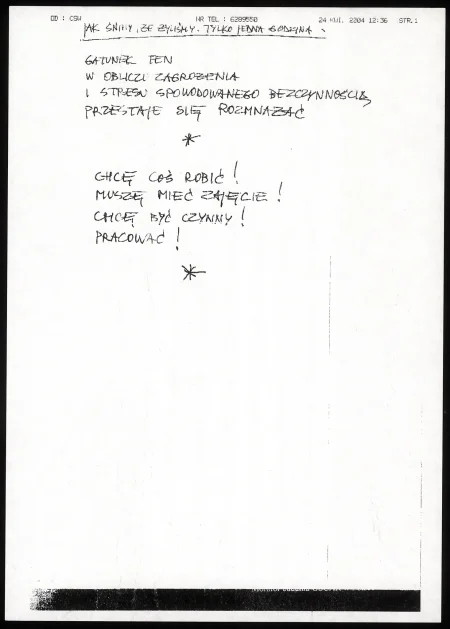 OD : CSW NR TEL : 6289550 24 KWI. 2004 12:36 STR.1
JAK ŚNIMY, ŻE ŻYLIŚMY. TYLKO JEDNA GODZINA.
GATUNEK TEN
W OBLICZU ZAGROŻENIA
I STRESU SPOWODOWANEGO BEZCZYNNOŚCIĄ
PRZESTAJE SIĘ ROZMNAŻAĆ
*
CHCĘ COŚ ROBIĆ!
MUSZĘ MIEĆ ZAJĘCIE!
CHCĘ BYĆ CZYNNY!
PRACOWAĆ!
*